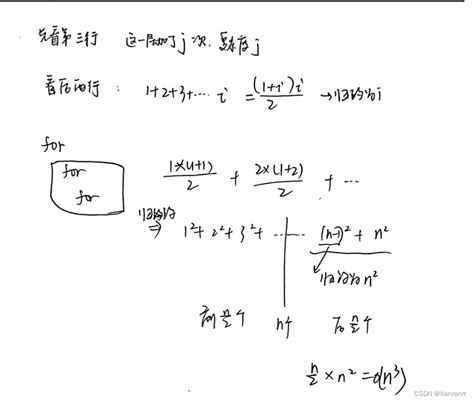 先看第三行 这一层加了j次, 复杂度j
看后两行: 1+2+3+⋯ i = (1+i)i/2 →归约为i
for
for
for
1×(1+1)/2 + 2×(1+2)/2 + ⋯
归约约
⇒ 1²+2²+3²+⋯⋯ (n-1)² + n²
归约为n²
前n/2个 n个 后n/2个
n/2 × n² = O(n³)
CSDN @Vanranrr